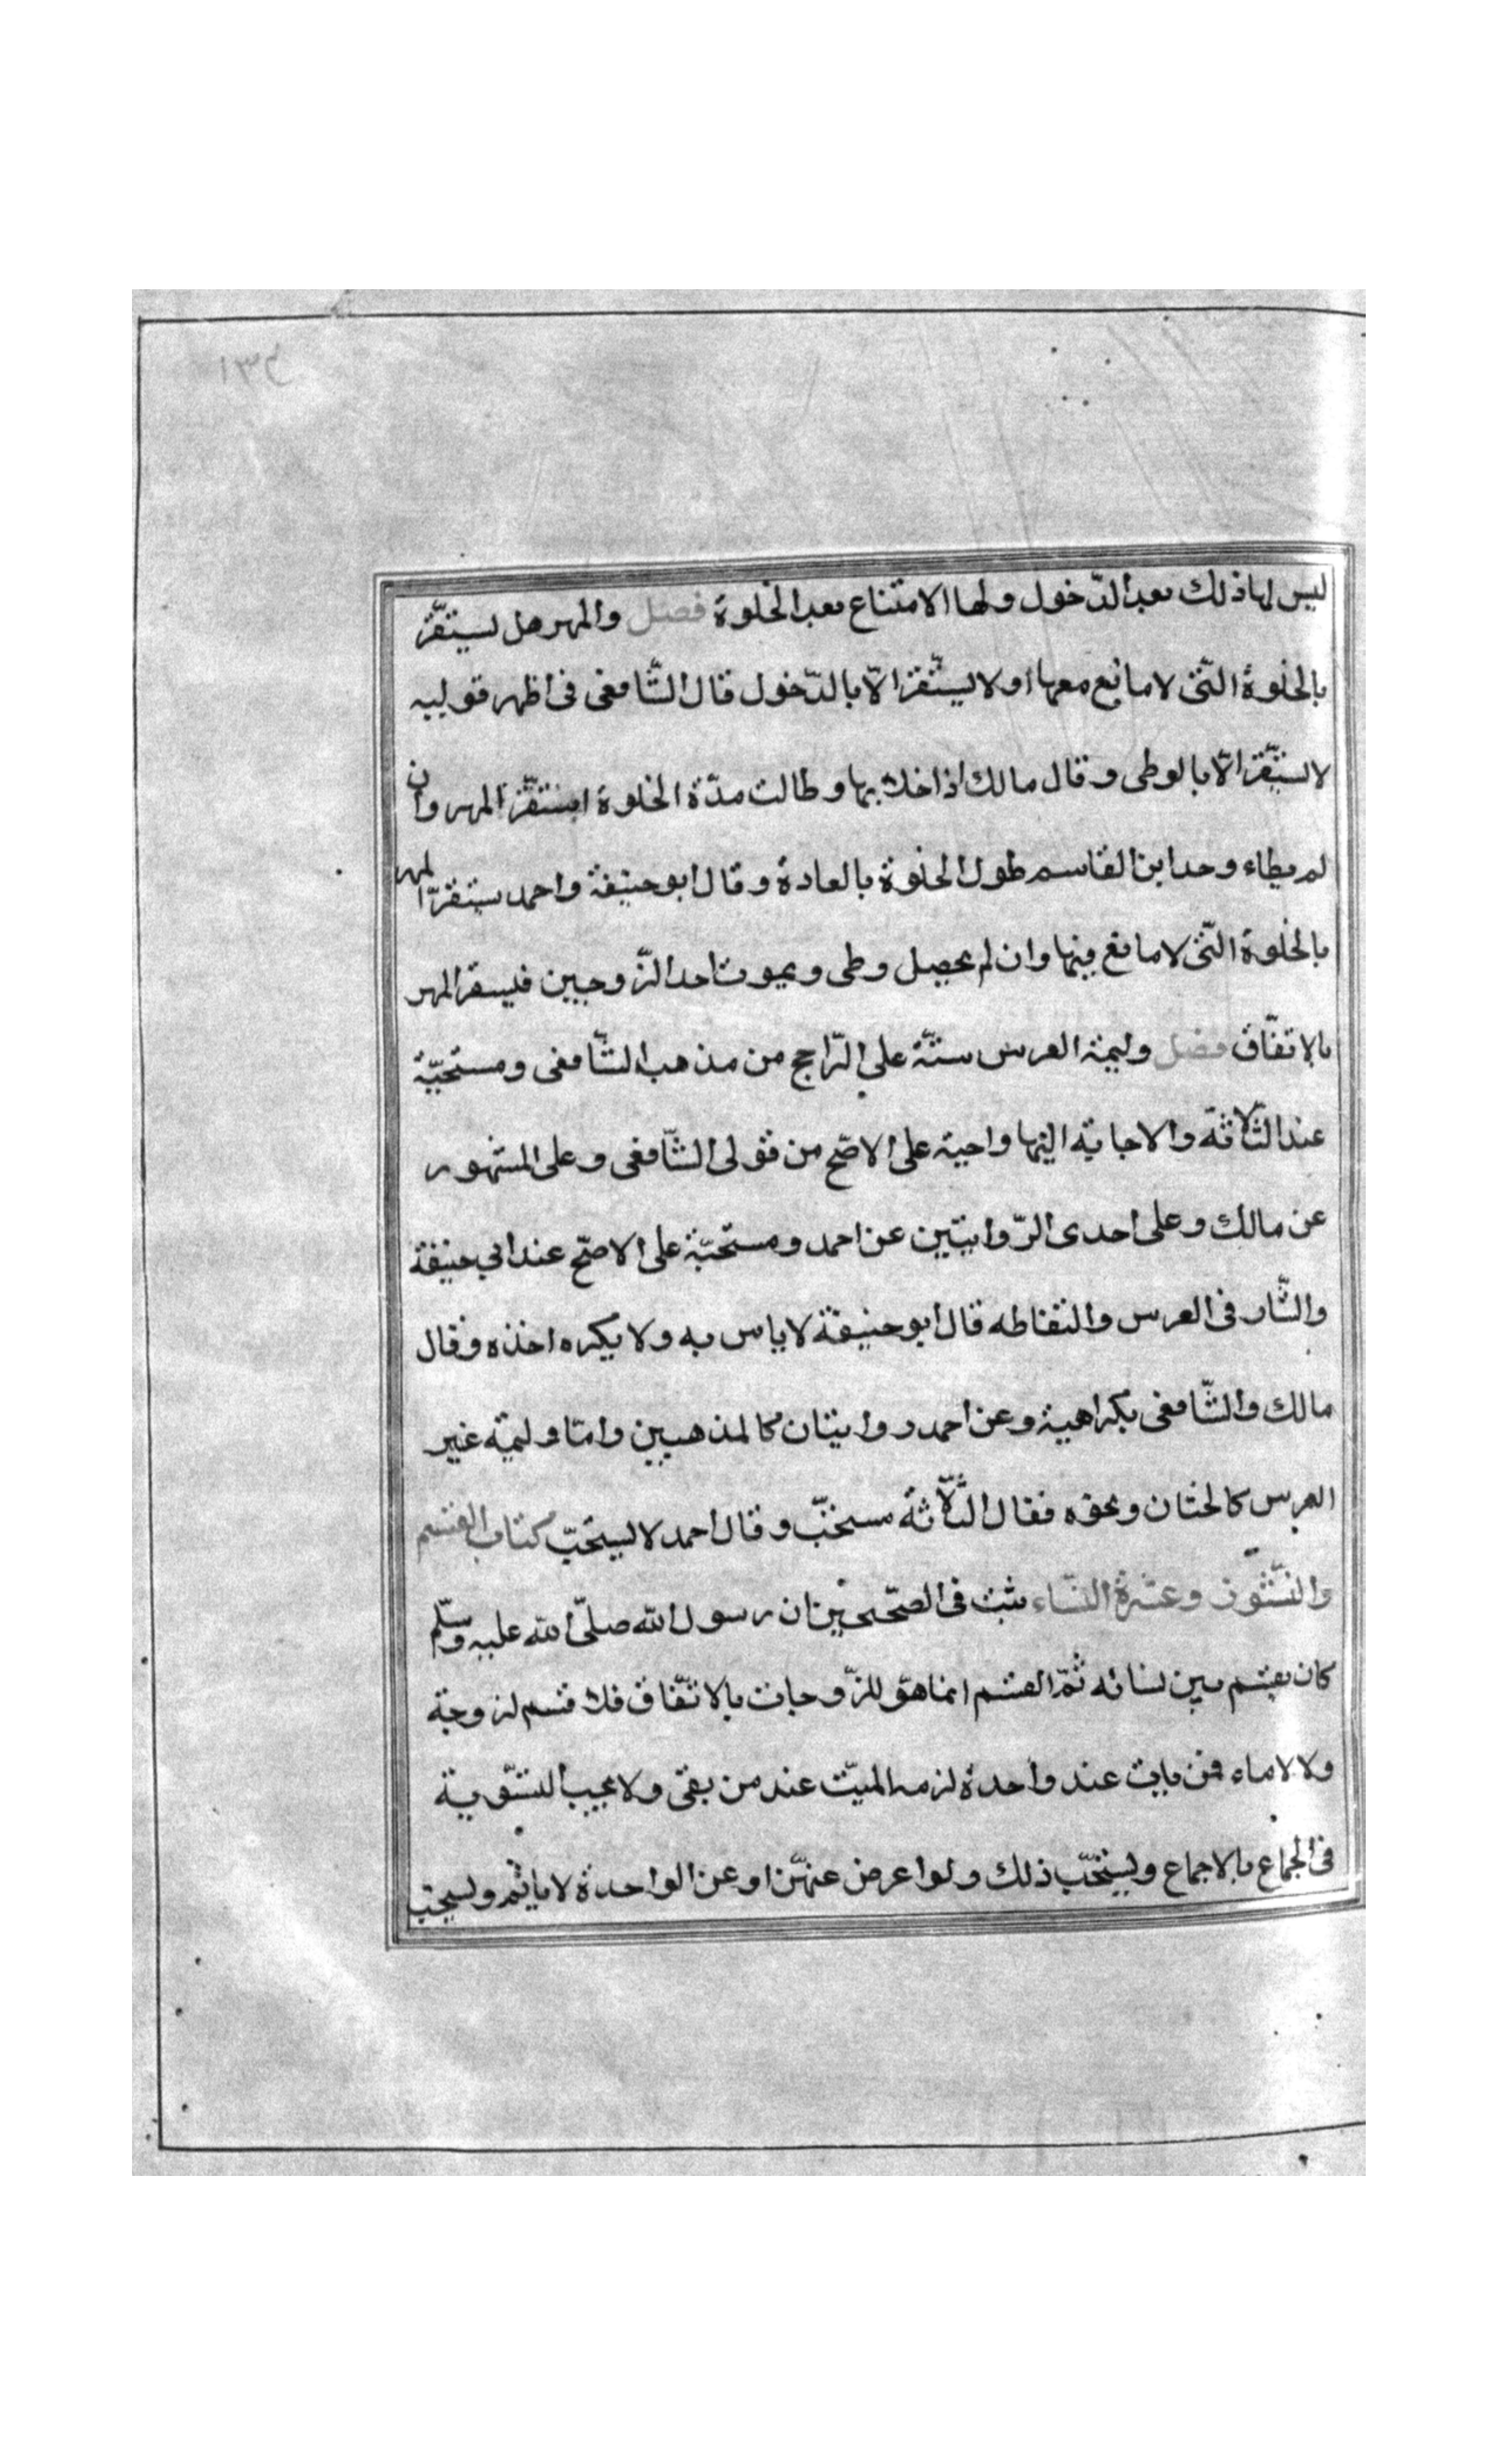 ليس لها ذلك بعد الدّخول ولها الامتناع بعد الخلوة فصل والمهر هل يستقرّ
بالخلوة الّتى لا مانع معها او لا يستقرّ الّا بالدّخول قال الشّافعى فى اظهر قوليه
لا يستقرّ الّا بالوطى وقال مالك اذا خلا بها وطالت مدّة الخلوة استقرّ المهر وان
لم يطاء وحد ابن القاسم طول الخلوة بالعادة وقال ابو حنيفة واحمد يستقرّ المهر
بالخلوة الّتى لا مانع فيها وان لم يحصل وطى وبموت احد الزّوجين فيسقر المهر
بالاتفّاق فصل وليمة العرس سنّة على الرّاجح من مذهب الشّافعى ومستحبّة
عند الثّلاثة والاجابة اليها واجبة على الاصّح من قولى الشّافعى وعلى المشهور
عن مالك وعلى احدى الرّوايتين عن احمد ومستحبّة على الاصّح عند ابى حنيفة
والنّثار فى العرس والتقاطه قال ابو حنيفة لا باس به ولا يكره اخذه وقال
مالك والشّافعى بكراهية وعن احمد روايتان كالمذهبين وامّا وليمة غير
العرس كالختان ونحوه فقال الثّلاثة مستحبّ وقال احمد لا يستحبّ كتاب القسم
والنّشوز وعشرة النّساء ثبت فى الصّحيحين ان رسول اللّه صلّى اللّه عليه وسلّم
كان يقسم بين نسائه ثمّ القسم انما هو للزّوجات بالاتّفاق فلا قسم لزوجة
ولا لاماء فمن بات عند واحدة لزمه المبيت عند من بقى ولا يجب التسّوية
فى الجماع بالاجماع ويستحبّ ذلك ولو اعرض عنهّن او عن الواحدة لا ياثم ويستحب